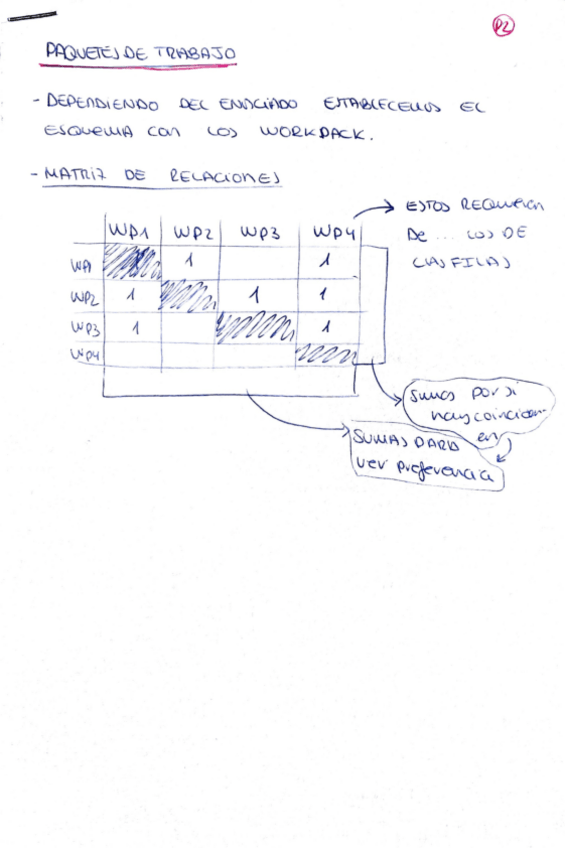 P2
PAQUETES DE TRABAJO
- DEPENDIENDO DEL ENUCIADO ESTABLECEMOS EL
ESQUEMA CON LOS WORKPACK.
- MATRIZ DE RELACIONES
WP1 WP2 WP3 WP4
ESTOS REQUIEREN
DE ... LOS DE
LAS FILAS
WP1 1 1
WP2 1 1 1
WP3 1 1
WP4
SUMAS POR SI
hay coinciden
en
SUMAS PARA
ver preferencia